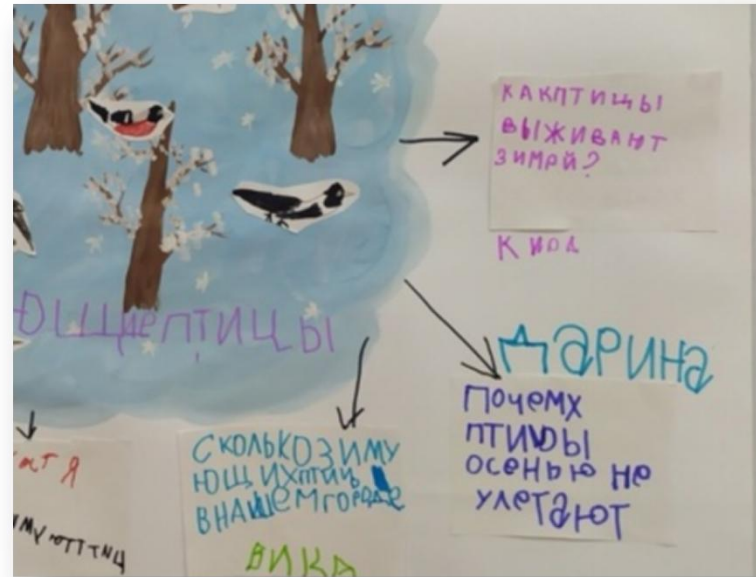 КАКПТИЦЫ
ВЫЖИВАЮТ
ЗИМОЙ?
ЮЩИЕПТИЦЫ
ДАРИНА
ПОЧЕМХ
ПТИЦЫ
ОСЕНЬЮ НЕ
УЛЕТАЮТ
СКОЛЬКОЗИМУ
ЮЩИХПТИЦ
ВНАШЕМГОРОДЕ
ВИКА